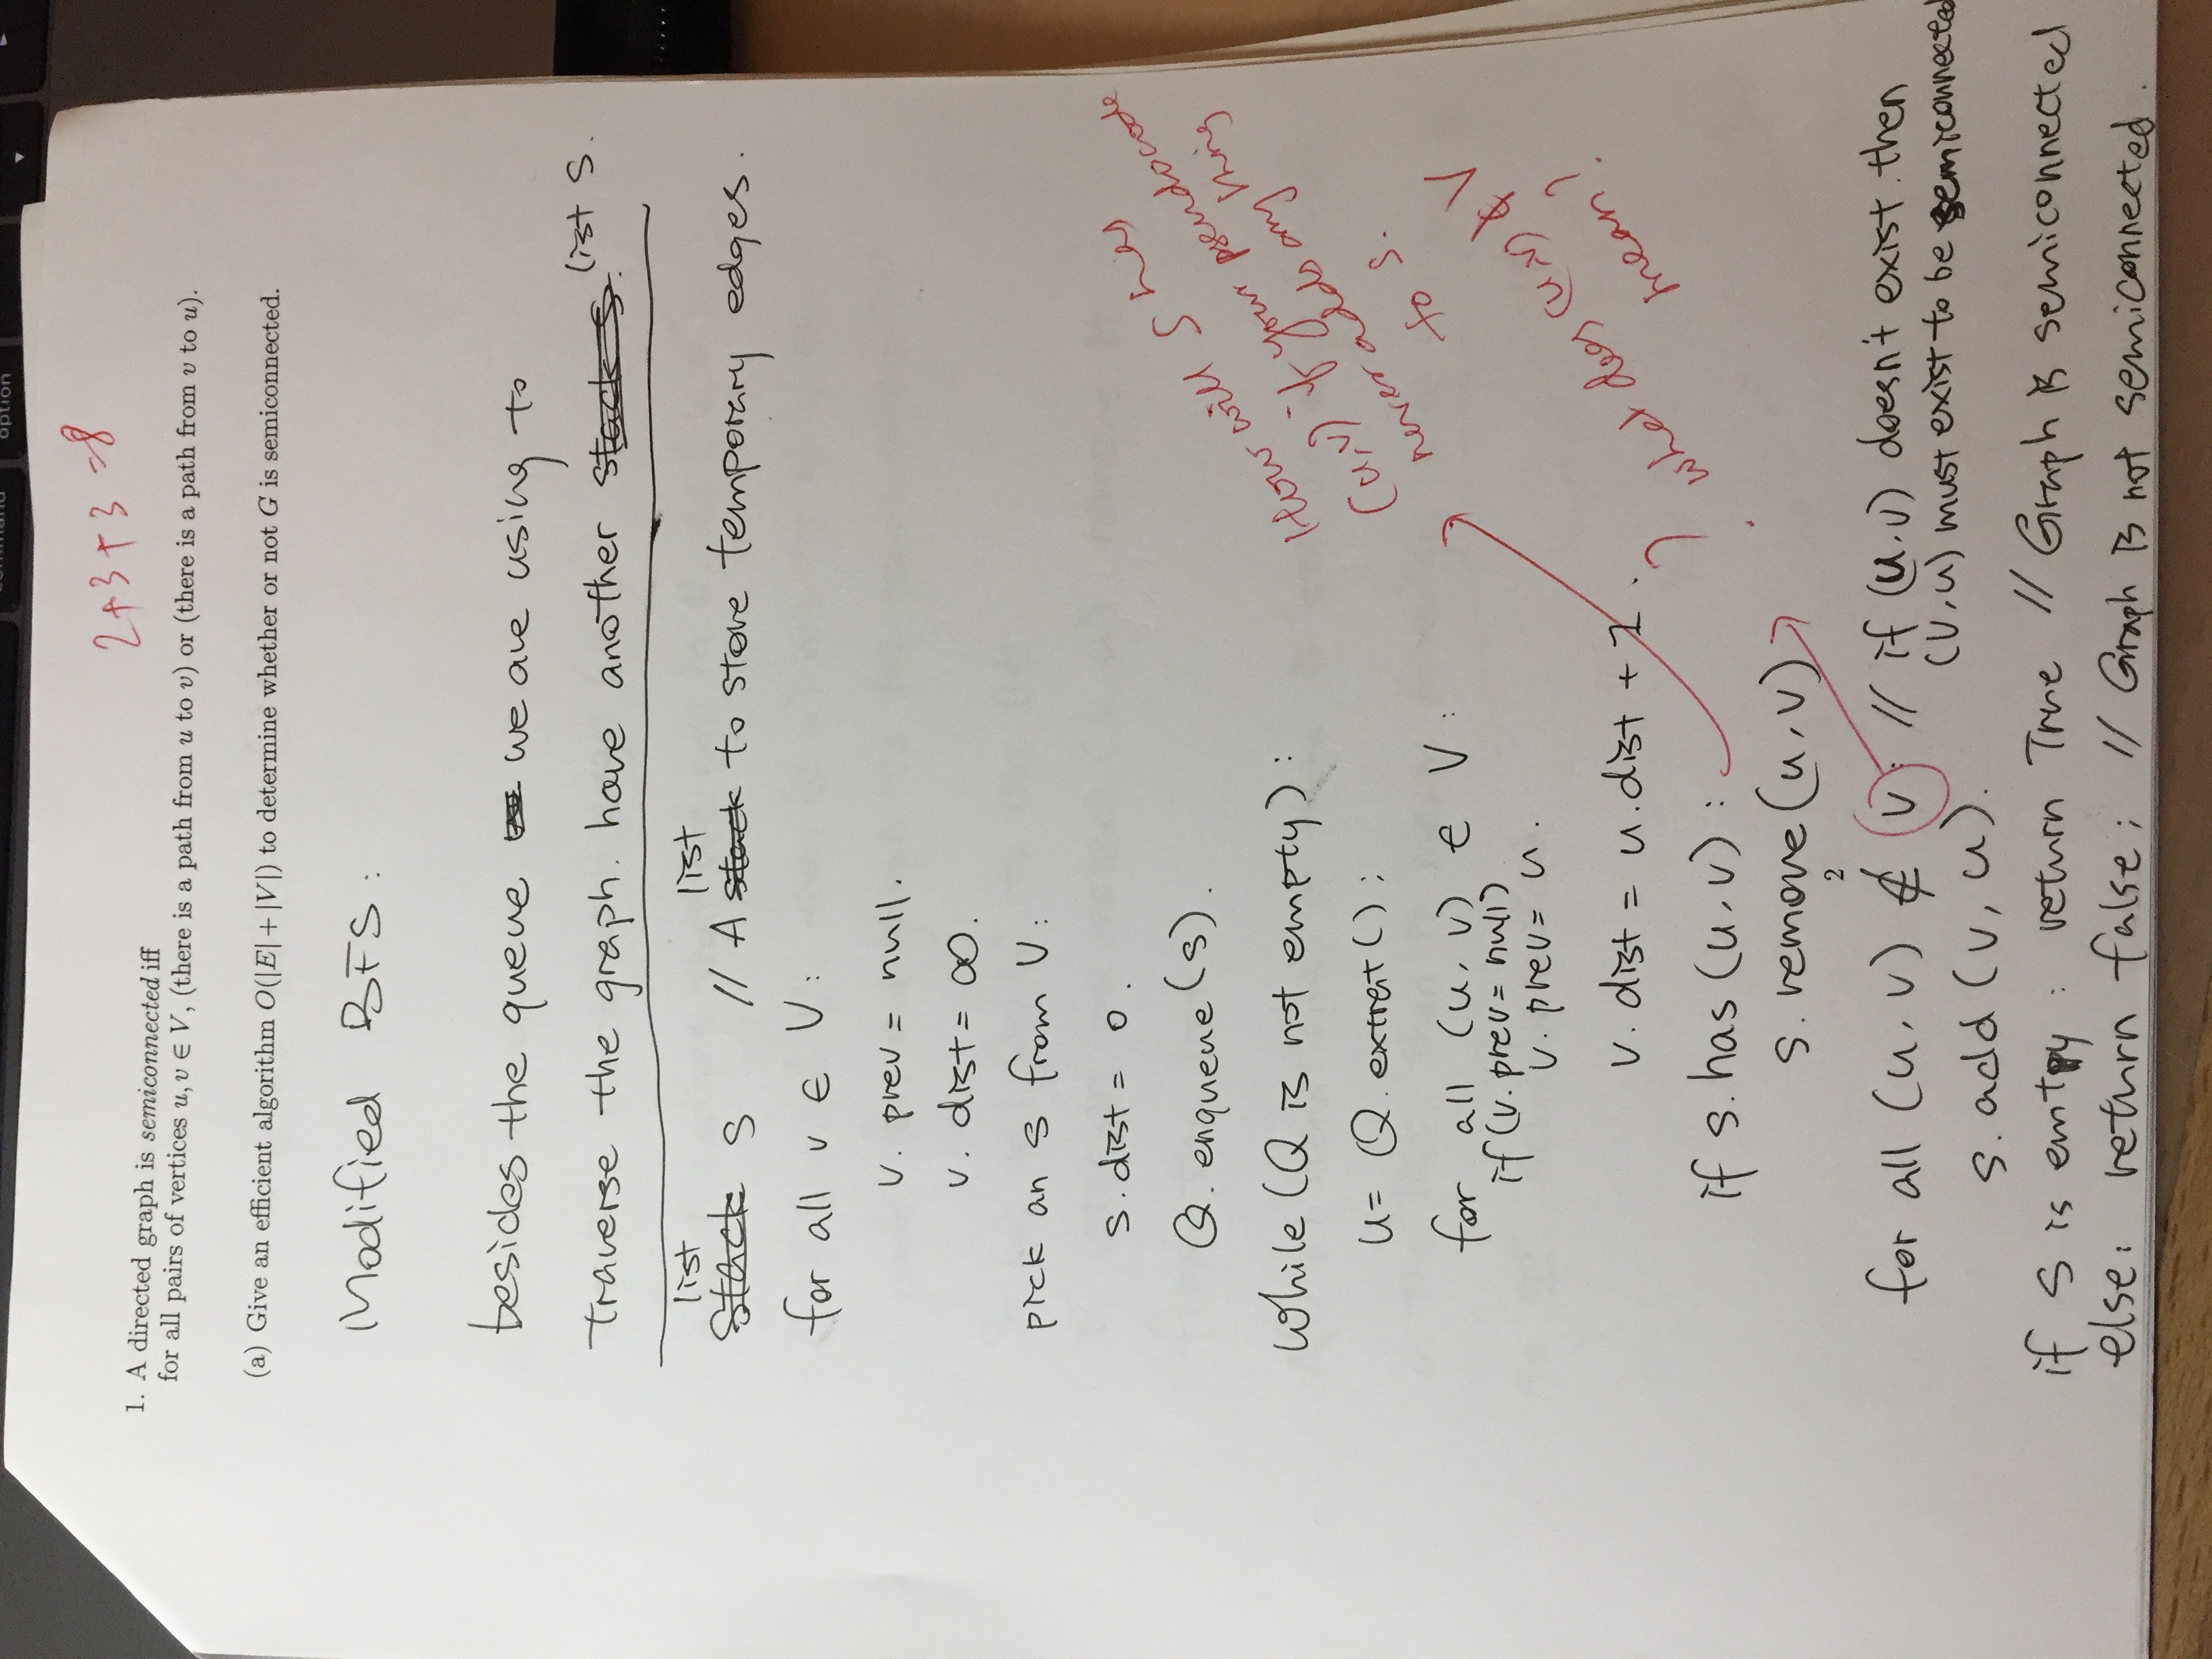 command
option
2+3+3=8
1. A directed graph is semiconnected iff
for all pairs of vertices u, v ∈ V, (there is a path from u to v) or (there is a path from v to u).
(a) Give an efficient algorithm O(|E| + |V|) to determine whether or not G is semiconnected.
Modified BFS:
besides the queue we are using to
traverse the graph. have another stack S. list S.
list list
Stack S // A stack to store temporary edges.
for all v ∈ V:
v. prev = null.
v. dist = ∞.
pick an s from V:
s. dist = 0.
Q. enqueue(s).
While (Q is not empty):
u = Q. extrat();
for all (u, v) ∈ V:
if (v. prev = null)
v. prev = u.
v. dist = u. dist + 1.
if s. has (u, v):
s. remove (u, v)
How will S has
(u,v) if your pseudocode
never adds any thing
to S.
? what does (u,v) ∉ V
mean?
2
for all (u, v) ∉ V: // if (u, v) doesn't exist. then
(v, u) must exist to be semiconnected
s. add (v, u).
if S is emtpy: return True // Graph is semiconnected
else: return false; // Graph is not semiconnected.